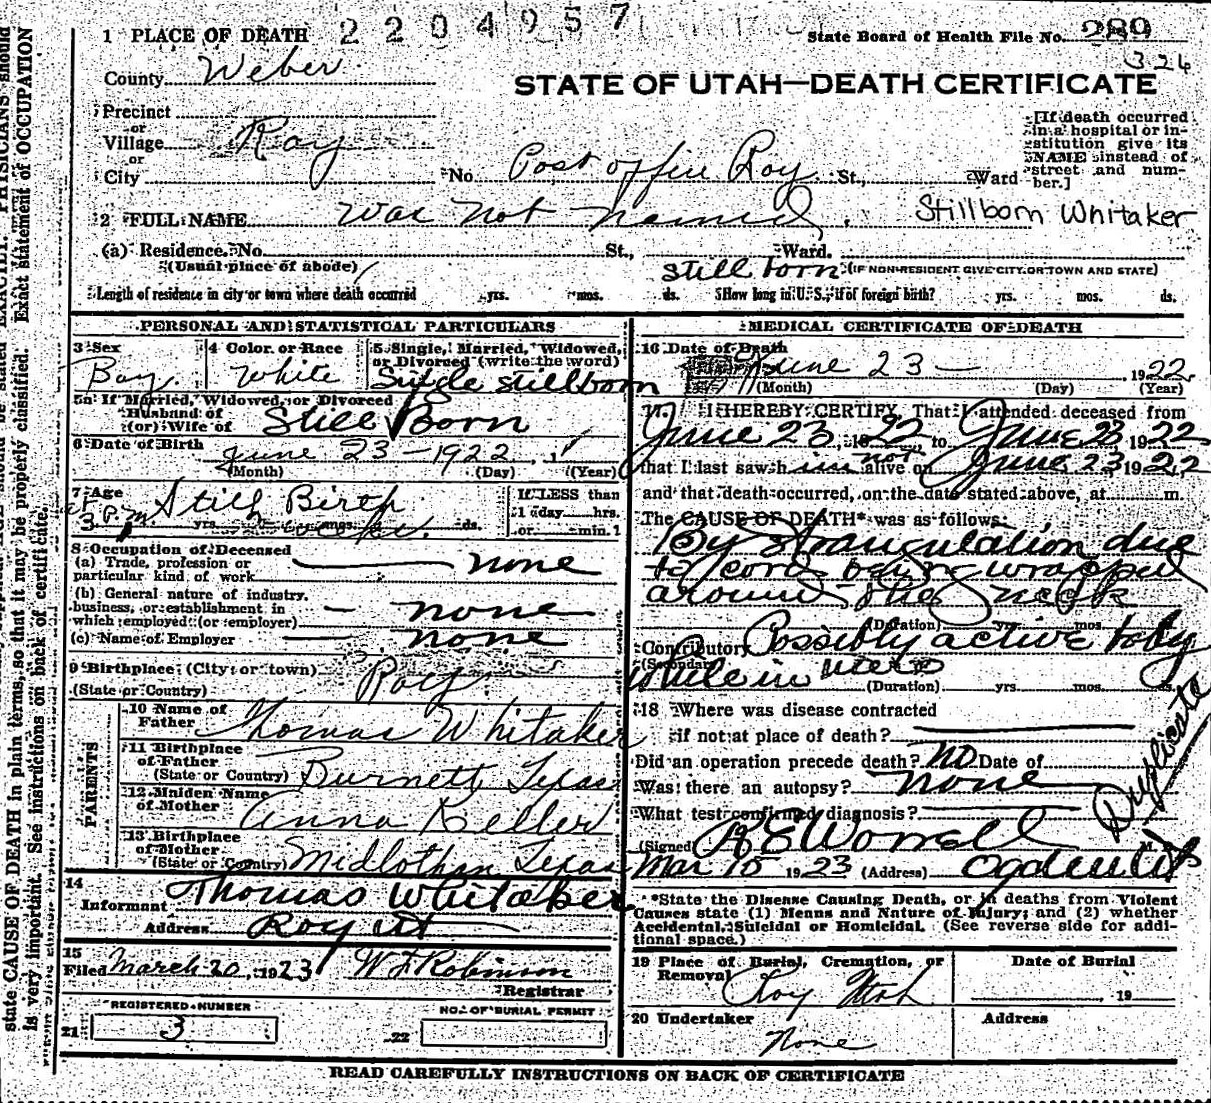 2204957
1 PLACE OF DEATH
State Board of Health File No. 289
326
County Weber
STATE OF UTAH—DEATH CERTIFICATE
Precinct
or
Village Roy
or
City No. Post office Roy St., Ward
[If death occurred
in a hospital or in-
stitution give its
NAME instead of
street and num-
ber.]
2 FULL NAME was not named. Stillborn Whitaker
(a) Residence. No. St., Ward.
(Usual place of abode) still born (IF NON-RESIDENT GIVE CITY OR TOWN AND STATE)
Length of residence in city or town where death occurred yrs. mos. ds. How long in U. S., if of foreign birth? yrs. mos. ds.
PERSONAL AND STATISTICAL PARTICULARS
3 Sex
Boy
4 Color or Race
White
5 Single, Married, Widowed,
or Divorced (write the word)
Single stillborn
5a If Married, Widowed, or Divorced
Husband of
(or) Wife of Still Born
6 Date of Birth June 23-1922
(Month) (Day) (Year)
7 Age
at 3 P.m. Still Birth
yrs. mos. ds.
If LESS than
1 day hrs.
or min.
8 Occupation of Deceased
(a) Trade, profession or
particular kind of work none
(b) General nature of industry,
business, or establishment in
which employed (or employer) none
(c) Name of Employer none
9 Birthplace (City or town) Roy
(State or Country)
PARENTS
10 Name of
Father Thomas Whitaker
11 Birthplace
of Father
(State or Country) Burnett Texas
12 Maiden Name
of Mother Anna Keller
13 Birthplace
of Mother
(State or Country) Midlothian Texas
14
Informant Thomas Whitaker
Address Roy ut
15
Filed March 20, 1923 W J Robinson
Registrar
REGISTERED NUMBER
21 3
NO. OF BURIAL PERMIT
22
MEDICAL CERTIFICATE OF DEATH
16 Date of Death
June 23 — 1922
(Month) (Day) (Year)
17. I HEREBY CERTIFY, That I attended deceased from
June 23, 1922 to June 23 1922
that I last saw h im not alive on June 23 1922
and that death occurred, on the date stated above, at m.
The CAUSE OF DEATH* was as follows:
By strangulation due
to cord being wrapped
around the neck
(Duration) yrs. mos.
Contributory Possibly active baby
(Secondary)
while in utero
(Duration) yrs. mos. ds.
18 Where was disease contracted
if not at place of death?
Did an operation precede death? no Date of
Was there an autopsy? none
What test confirmed diagnosis?
Duplicate
(Signed) R E Worrell M. D.
Mar 15 1923 (Address) Ogden Ut
*State the Disease Causing Death, or in deaths from Violent
Causes state (1) Means and Nature of Injury; and (2) whether
Accidental, Suicidal or Homicidal. (See reverse side for addi-
tional space.)
19 Place of Burial, Cremation, or
Removal
Roy Utah
Date of Burial
, 19
20 Undertaker
None
Address
READ CAREFULLY INSTRUCTIONS ON BACK OF CERTIFICATE
state CAUSE OF DEATH in plain terms, so that it may be properly classified. Exact statement of OCCUPATION
is very important. See instructions on back of certificate.